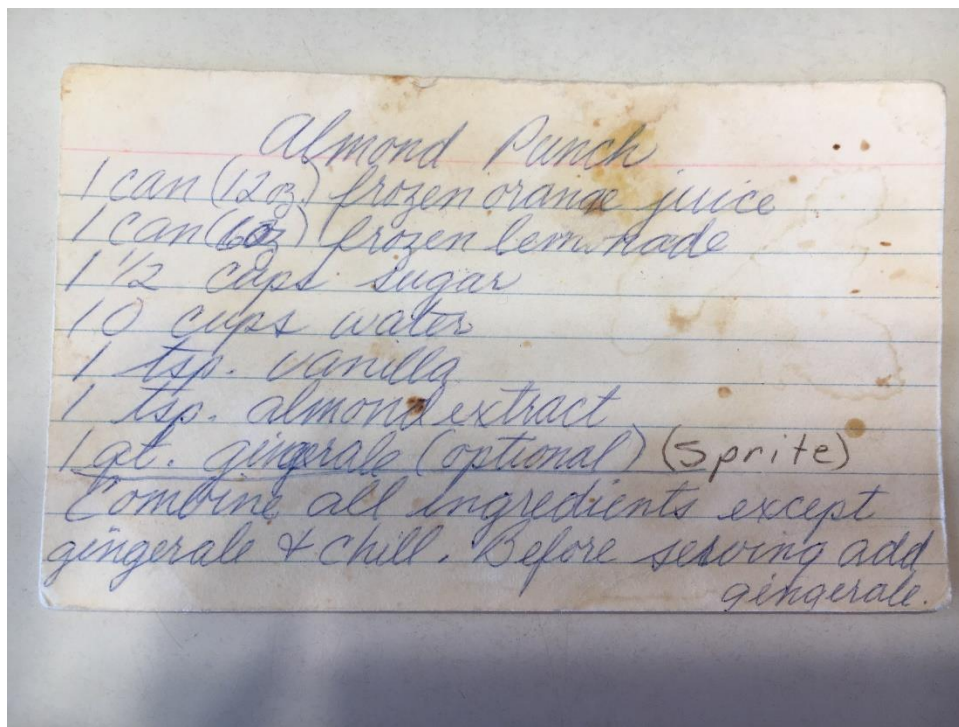 Almond Punch
1 can (12 oz.) frozen orange juice
1 can (6 oz) frozen lemonade
1 1/2 cups sugar
10 cups water
1 tsp. vanilla
1 tsp. almond extract
1 qt. gingerale (optional) (Sprite)
Combine all ingredients except
gingerale & chill. Before serving add
gingerale.